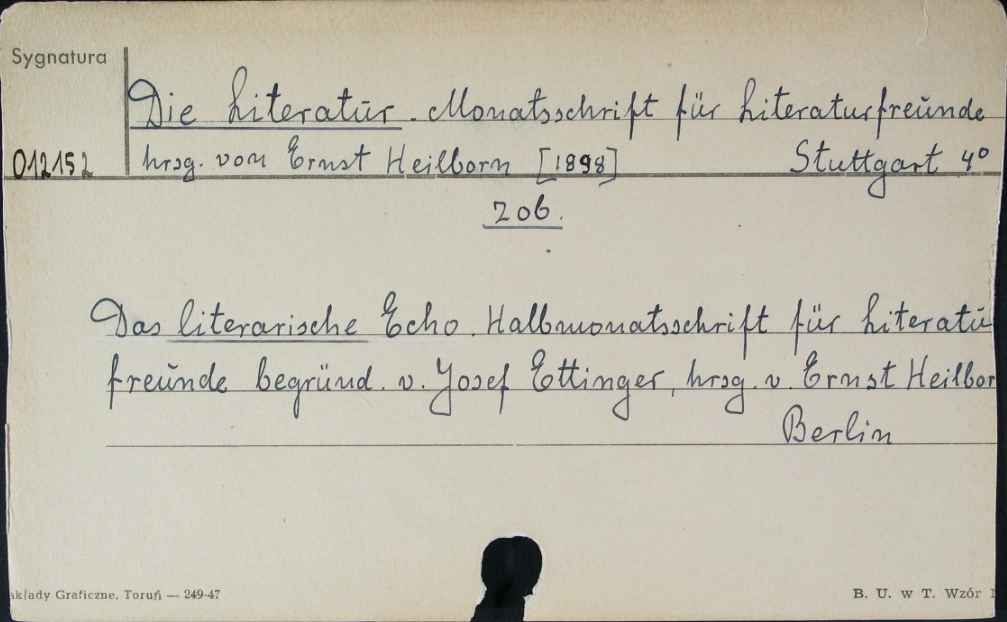 Sygnatura
Die Literatur. Monatsschrift für Literaturfreunde
012152 hrsg. von Ernst Heilborn [1898] Stuttgart 4°
zob.
Das literarische Echo. Halbmonatsschrift für Literatu
freunde begründ. v. Josef Ettinger, hrsg. v. Ernst Heilbor
Berlin
akłady Graficzne, Toruń — 249-47 B. U. w T. Wzór